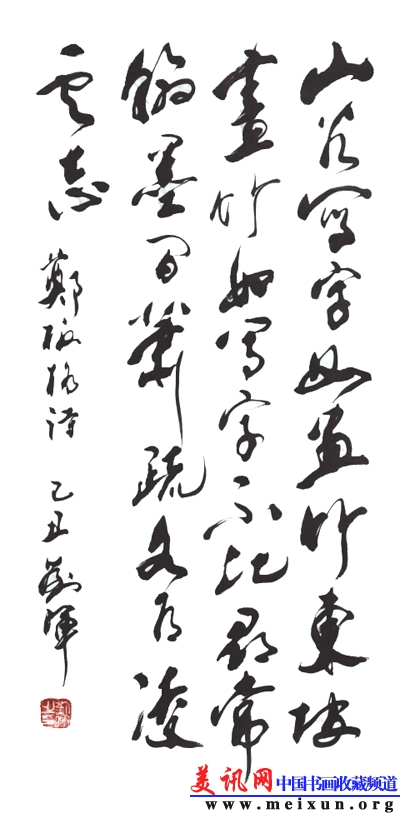 山谷写字如畫竹東坡
畫竹如写字不比尋常
翰墨间蕭疏各有凌
云意
鄭板橋詩 己丑 劉
美讯网 中国书画收藏频道
www.meixun.org